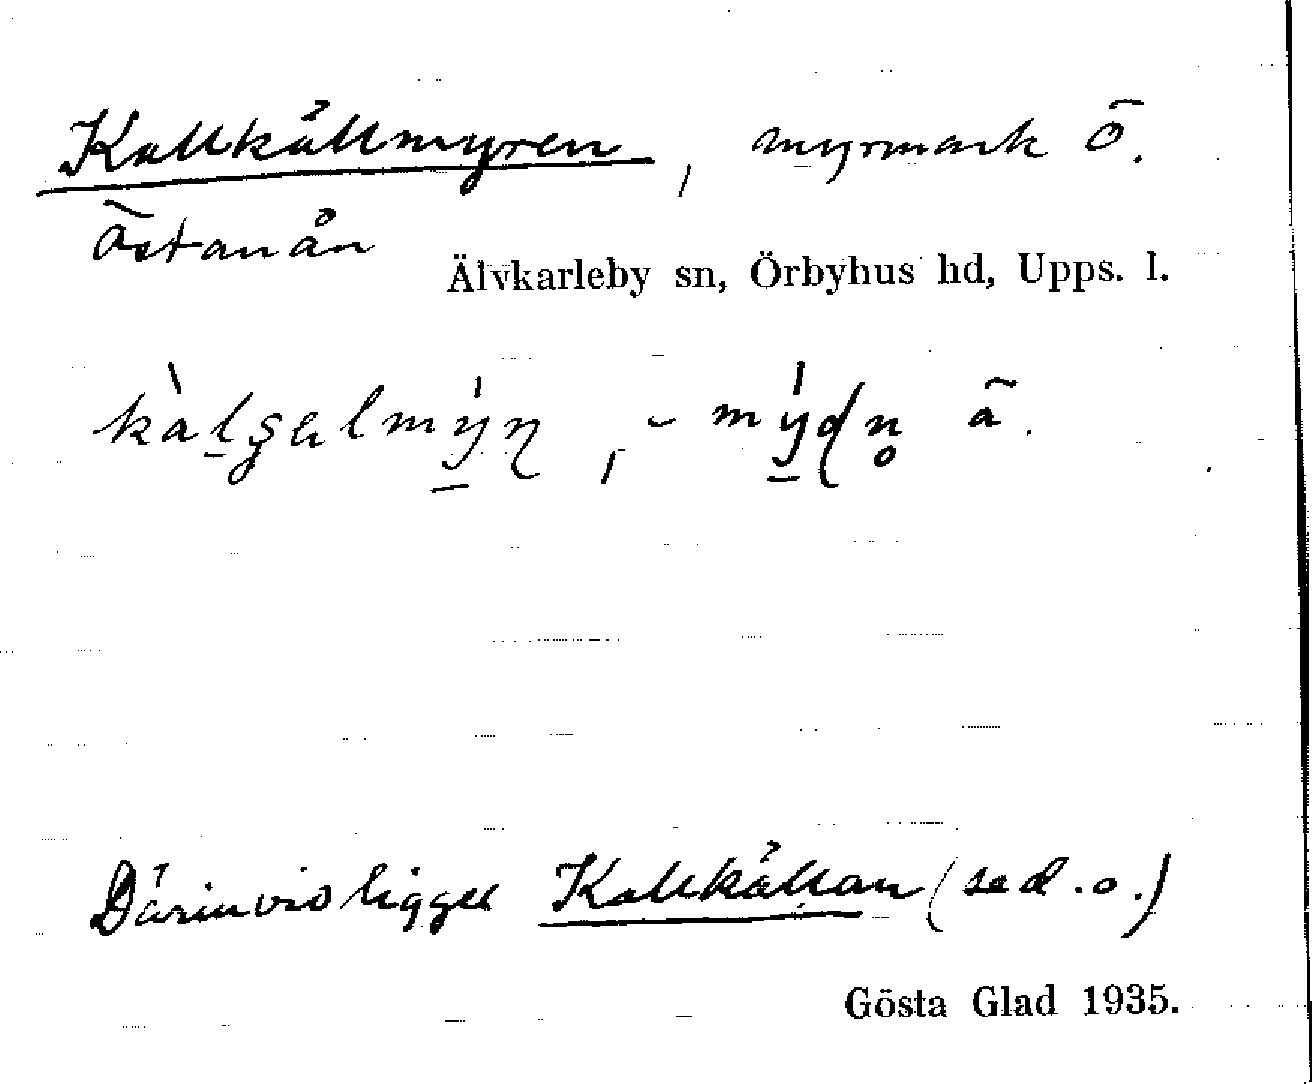 Kallkällmyren, myrmark Ö.
Östanån
Älvkarleby sn, Örbyhus hd, Upps. l.
ä.
Därinvid ligger Kallkällan (se d. o.)
Gösta Glad 1935.